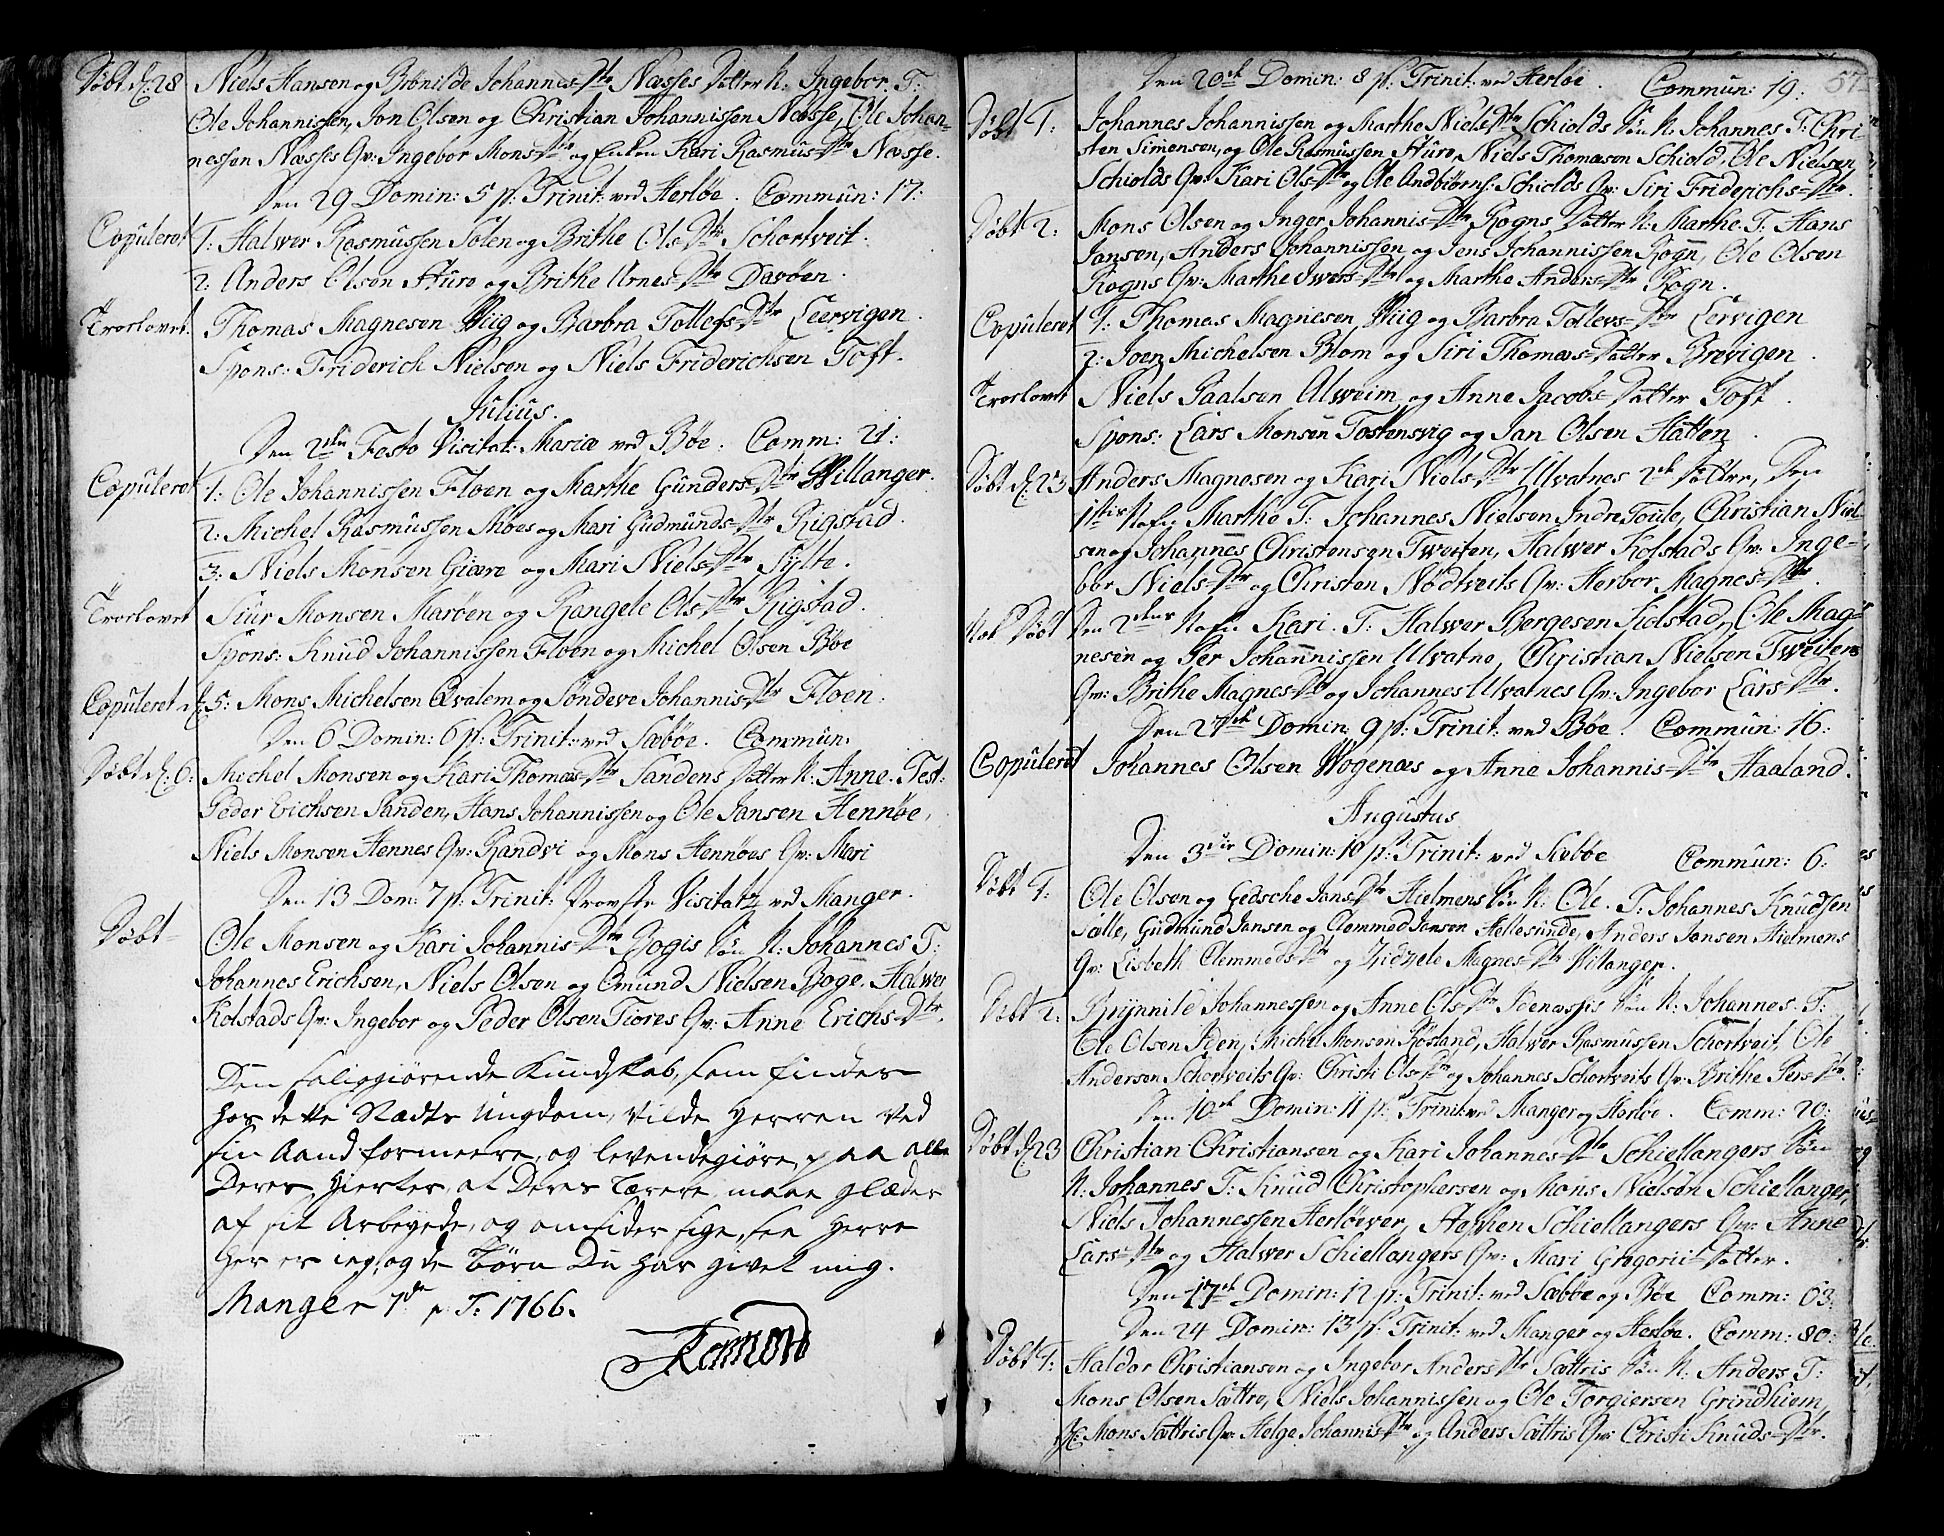 Døbt d: 28 Niels Hansen og Brønilde Johannes-Dtr Næsses Datter N: Ingebor. T:
Ole Johannissen, Jon Olsen og Christian Johannissen Næsse, Ole Johan-
nessen Næsses Qv: Ingebor Mons-Dtr og Enken Kari Rasmus-Dtr Næsse.
Den 29 Domin: 5 p: Trinit: ved Herløe. Commun: 17:
Copuleret 1: Halwer Rasmussen Solen og Brithe Ols-Dtr Schortveit.
2: Anders Olsen Huro og Brithe Urnes-Dtr Davøen.
Troelovet. Thomas Magnesen Wiig og Barbra Tollefs-Dtr Leervigen.
Spons: Friderich Nielsen og Niels Friderichsen Toft.
Julius.
Den 2den Festo Visitat: Mariæ ved Bøe. Comm: 21:
Copuleret 1: Ole Johannissen Floen og Marthe Gunders-Dtr Willanger.
2: Michel Rasmussen Moes og Mari Gudmunds-Dtr Rigstad.
3: Niels Monsen Giære og Mari Niels-Dtr Sylte.
Troelovet Siur Monsen Marøen og Rangele Ols-Dtr Rigstad.
Spons: Knud Johannissen Floen og Michel Olsen Bøe
Copuleret d: 5: Mons Michelsen Qvalem og Søndeve Johannis-Dtr Floen.
Den 6 Domin: 6 p: Trinit: ved Sæbøe. Commun:
Døbt d: 6: Michel Monsen og Kari Thomæs-Dtr Sandens Datter N: Anne. Test:
Peder Erichsen Sanden, Hans Johannissen og Ole Jansen Hennøe,
Niels Monsen Hennes Qv: Randvi og Mons Hennøes Qv: Mari
Den 13 Dom: 7 p: Trinit: Provste Visitatz ved Manger.
Døbt- Ole Monsen og Kari Johannis-Dtr Bogis Søn N: Johannes T:
Johannes Erichsen, Niels Olsen og Omund Nielsen Boge, Halwer
Kolstads Qv: Ingebor og Peder Olsen Tiores Qv: Anne Erichs-Dtr.
Den saliggiørende Kundskab, som findes
hos dette Stædts Ungdom, vilde Herren ved
sin Aand formeere, og levendegiøre, paa alle
Deres Hierter, at Deres Lærere maae glædes
af sit Arbeyde, og omsider sige, see Herre
her er ieg, og de Børn Du har givet mig.
Manger 7de p. T: 1766.
57
Den 20de Domin: 8 p: Trinit: ved Herløe. Commun: 19:
Døbt 1: Johannes Johannissen og Marthe Niels-Dtr Schiolds Søn N: Johannes T: Chri-
sten Simonsen, og Ole Rasmussen Huro, Niels Thomæson Schiold, Ole Nielsen
Schiolds Qv: Kari Ols-Dtr og Ole Andbiørns: Schiolds Qv: Siri Friderichs-Dtr.
Døbt 2: Mons Olsen og Inger Johannis-Dtr Rogns Datter N: Marthe. T: Hans
Jansen, Anders Johannissen og Jens Johannissen Rogn, Ole Olsen
Rogns Qv: Marthe Iwers-Dtr og Marthe Anders-Dtr Rogn.
Copuleret 1: Thomas Magnesen Wiig og Barbra Tollevs-Dtr Lervigen
2: Joen Michelsen Blom og Siri Thomæs-Datter Brevigen.
Troelovet Niels Paalsen Alweim og Anne Jacobs-Datter Toft.
Spons: Lars Monsen Tostensvig og Jan Olsen Hatten.
Døbt d: 23 Anders Magnesen og Kari Niels-Dtr Ulvatnes 2de Døttre, Den
1stes Nafn Marthe T: Johannes Nielsen Indre Toule, Christian Niel-
sen og Johannes Christensen Tweiten, Halwer Kolstads Qv: Inge-
bor Niels-Dtr og Christen Nødtveits Qv: Herbor Magnes-Dtr.
Nok Døbt Den 2dens Nafn Kari. T: Halwer Børgesen Kolstad, Ole Mag-
nesen og Per Johannissen Ulvatne, Christian Nielsen Tweitens
Qv: Brithe Magnes-Dtr og Johannes Ulvatnes Qv: Ingebor Lars-Dtr.
Den 27de Domin: 9 p: Trinit: ved Bøe. Commun: 16:
Copuleret Johannes Olsen Wogenæs og Anne Johannis-Dtr Haaland.
Augustus
Den 3die Domin: 10 p: Trinit: ved Sæbøe Commun: 6:
Døbt 1: Ole Olsen og Gedsche Jans-Dtr Hielmens Søn N: Ole. T: Johannes Knudsen
Sælle, Gudmund Jansen og Clemmed Jansen Hellesunde, Anders Jansen Hielmens
Qv: Lisbeth Clemmeds-Dtr og Magnes-Dtr Willanger.
Døbt 2: Brynnild Johannessen og Anne Ols-Dtr Idenæssis Søn N: Johannes. T:
Ole Olsen Iden, Michel Monsen Røsland, Halwer Rasmussen Schortveit, Ole
Andersen Schortveits Qv: Christi Ols-Dtr og Johannes Schortveits Qv: Brithe Pers-Dtr.
Den 10de Domin: 11 p: Trinit: ved Manger og Herløe. Comm: 20:
Døbt d: 23 Christian Christiansen og Kari Johannes-Dtr Schiellangers Søn
N: Johannes T: Knud Christophersen og Mons Nielsøn Schiellanger,
Niels Johannessen Herløever, Stephen Schiellangers Qv: Anne
Lars-Dtr og Halwer Schiellangers Qv: Mari Gregorii-Datter.
Den 17de Domin: 12 p: Trinit: ved Sæbøe og Bøe Comm: 63:
Den 24 Domin: 13 p: Trinit: ved Manger og Herløe. Comm: 80:
Døbt 1: Haldor Christiansen og Ingebor Anders-Dtr Sættris Søn N: Anders T:
Mons Olsen Sættre, Niels Johannissen og Ole Torgiersen Grindhiem,
Mons Sættris Qv: Helge Johannis-Dtr og Anders Sættris Qv: Christi Knuds-Dtr.